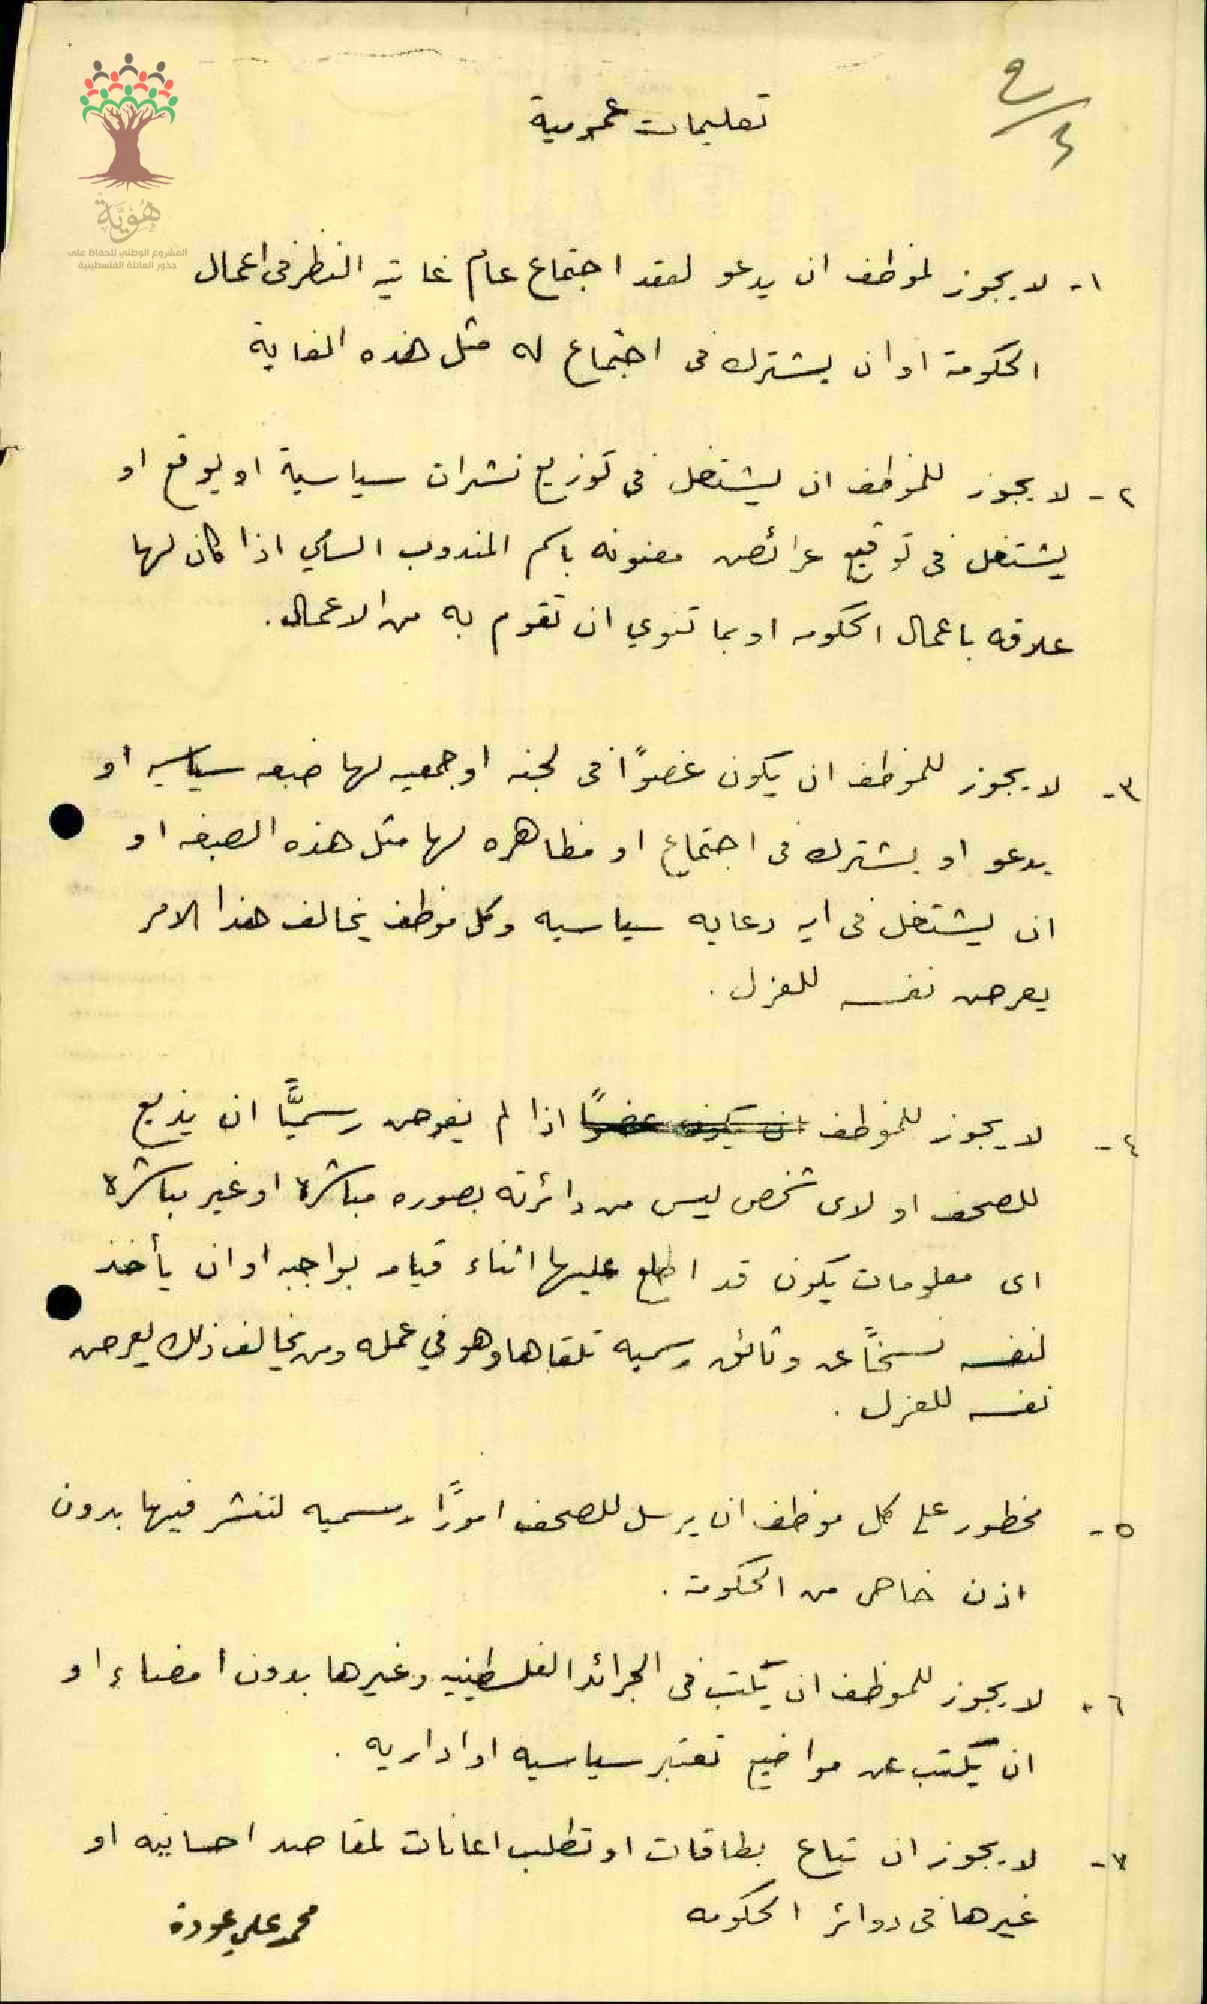 هُوِيَّة
المشروع الوطني للحفاظ على
جذور العائلة الفلسطينية
تعليمات عمومية
١- لا يجوز لموظف ان يدعو لعقد اجتماع عام غايته النظر فى اعمال
الحكومة او ان يشترك فى اجتماع له مثل هذه الغاية
٢- لا يجوز للموظف ان يشتغل فى توزيع نشرات سياسية او يوقع او
يشتغل فى توقيع عرائض معنونه باسم المندوب السامي اذا كان لها
علاقه باعمال الحكومه او بما تنوي ان تقوم به من الاعمال.
٣- لا يجوز للموظف ان يكون عضوًا فى لجنه او جمعيه لها صبغه سياسيه او
يدعو او يشترك فى اجتماع او مظاهره لها مثل هذه الصبغه او
ان يشتغل فى ايه دعايه سياسيه وكل موظف يخالف هذا الامر
يعرض نفسه للعزل.
٤- لا يجوز للموظف ان يكون عضوًا اذا لم يفوض رسميًّا ان يذيع
للصحف او لاى شخص ليس من دائرته بصوره مباشرة او غير مباشرة
اى معلومات يكون قد اطلع عليها اثناء قيامه بواجبه او ان يأخذ
لنفسه نسخًا عن وثائق رسميه تلقاها وهو في عمله ومن يخالف ذلك يعرض
نفسه للعزل.
٥- محظور على كل موظف ان يرسل للصحف امورًا رسميه لتنشر فيها بدون
اذن خاص من الحكومة.
٦- لا يجوز للموظف ان يكتب فى الجرائد الفلسطينيه وغيرها بدون امضاء او
ان يكتب عن مواضيع تعتبر سياسيه او اداريه.
٧- لا يجوز ان تباع بطاقات او تطلب اعانات لمقاصد احسانيه او
غيرها فى دوائر الحكومه
محمد علي عودة